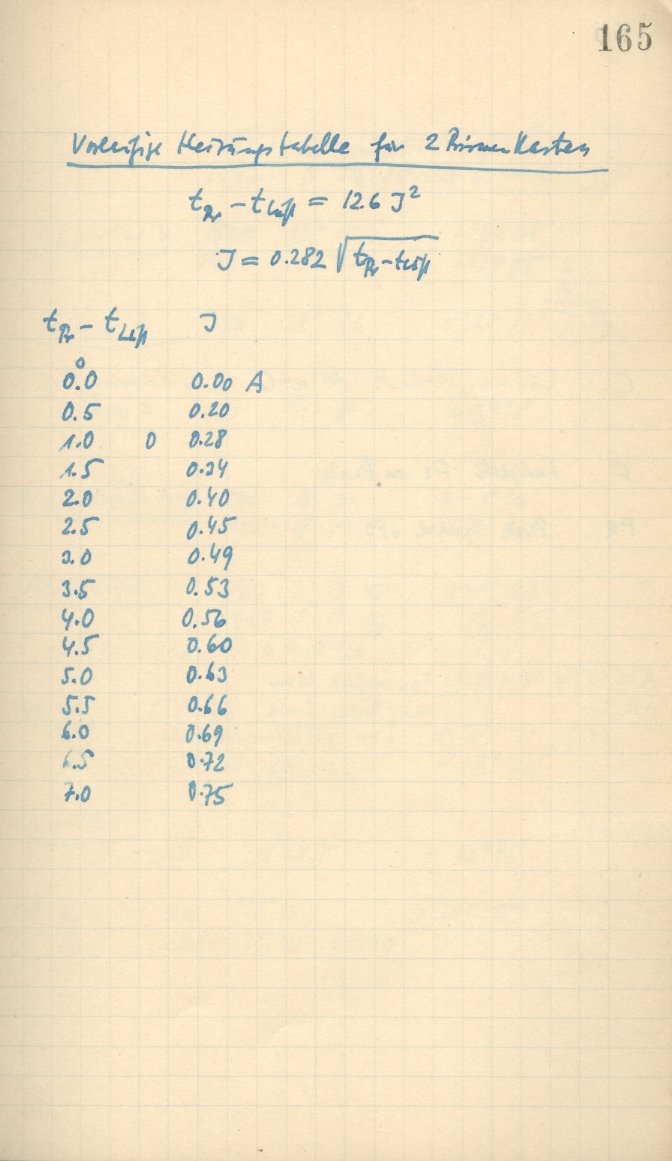 165
Vorläufige Heizungstabelle für 2 Prismen Kasten
t_Pr - t_Luft = 12.6 J²
J = 0.282 √(t_Pr - t_Luft)
t_Pr - t_Luft J
0.0° 0.00 A
0.5 0.20
1.0 0 0.28
1.5 0.34
2.0 0.40
2.5 0.45
3.0 0.49
3.5 0.53
4.0 0.56
4.5 0.60
5.0 0.63
5.5 0.66
6.0 0.69
6.5 0.72
7.0 0.75